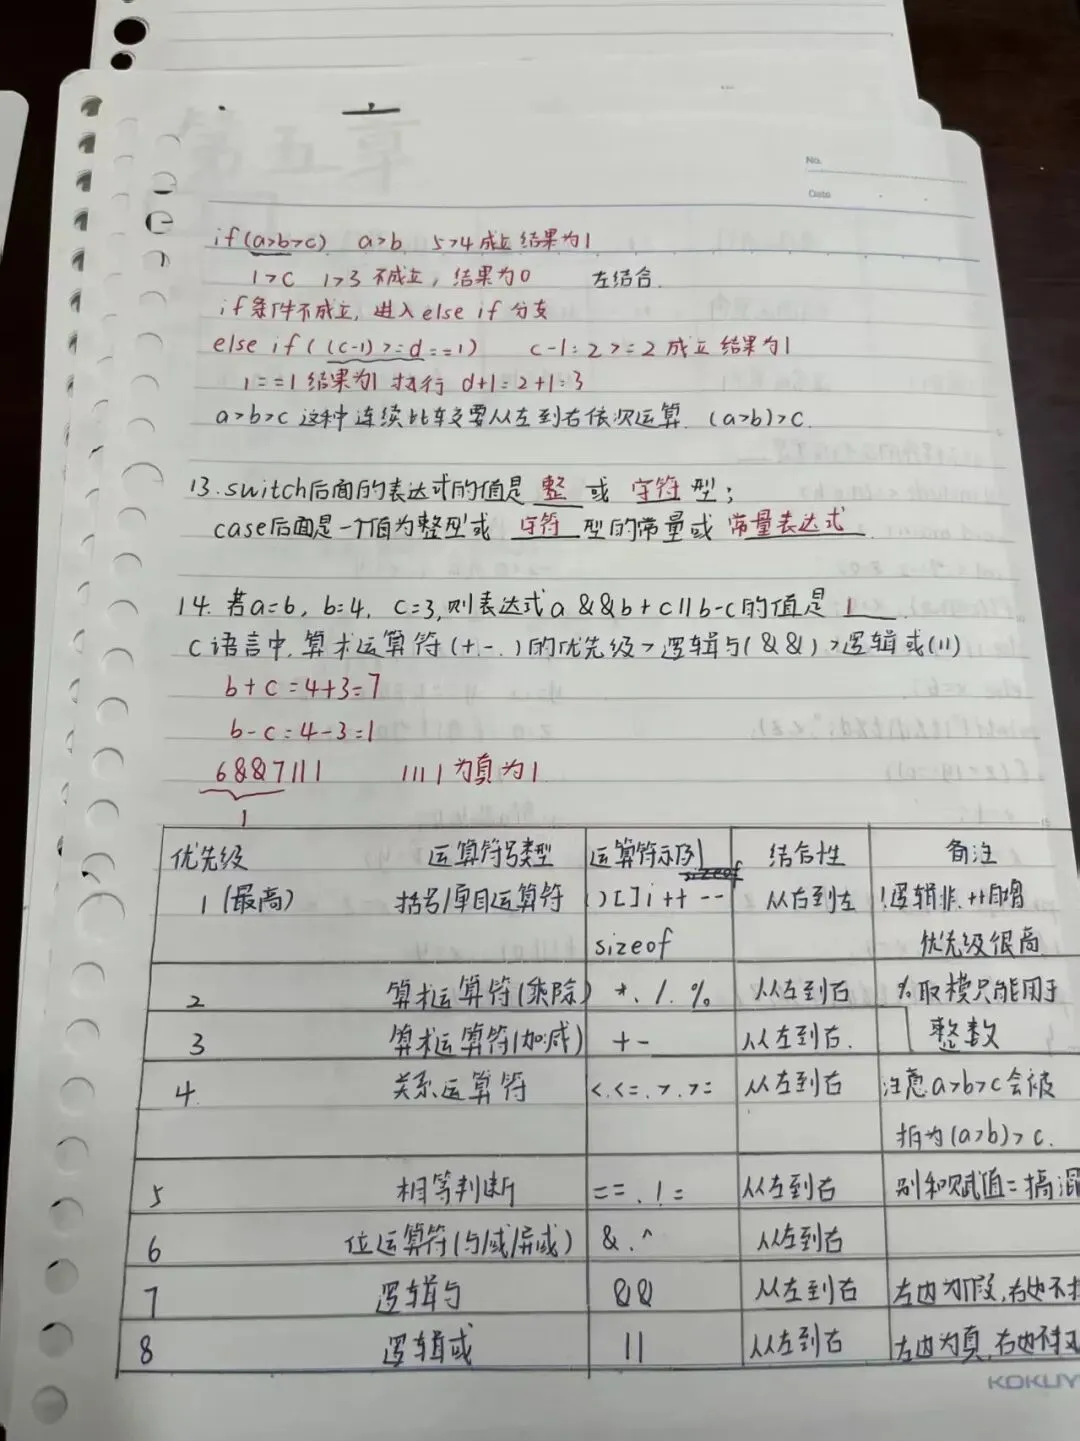 第五章
No.
Date
if(a>b>c) a>b 5>4成立结果为1
1>c 1>3 不成立,结果为0 左结合.
if条件不成立,进入else if 分支
else if((c-1)>=d==1) c-1=2>=2 成立 结果为1
1==1 结果为1 执行 d+1=2+1=3
a>b>c 这种连续比较要从左到右依次运算. (a>b)>c.
13.switch后面的表达式的值是 整 或 字符 型;
case后面是一个值为整型或 字符 型的常量或 常量表达式.
14.若a=6, b=4, c=3,则表达式a &&b+c||b-c的值是 1
C语言中,算术运算符(+-.)的优先级>逻辑与(&&)>逻辑或(||)
b+c=4+3=7
b-c=4-3=1
6&&7||1 1||1 为真为1.
1
优先级 运算符号类型 运算符示例 结合性 备注
sizeof
1(最高) 括号/单目运算符 ()[]i++-- 从右到左 !逻辑非.++自增
sizeof 优先级很高
2 算术运算符(乘除) *./.% 从左到右 %取模只能用于
3 算术运算符(加减) +- 从左到右. 整数
4. 关系运算符 <.<=.>.>= 从左到右 注意a>b>c会被
拆为(a>b)>c.
5 相等判断 ==.!= 从左到右 别和赋值=搞混
6 位运算符(与/或/异或) &.^ 从左到右
7 逻辑与 && 从左到右 左边为假,右边不
8 逻辑或 || 从左到右 左边为真,右边不
KOKUY